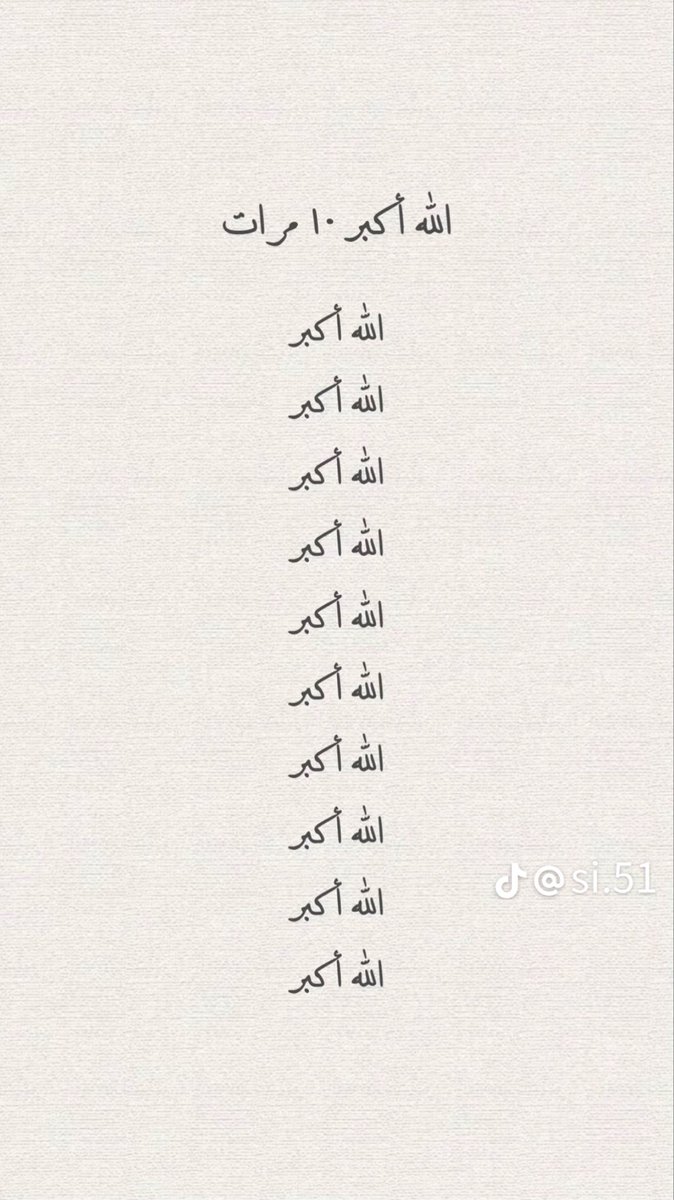 الله أكبر ١٠ مرات
الله أكبر
الله أكبر
الله أكبر
الله أكبر
الله أكبر
الله أكبر
الله أكبر
الله أكبر
@si.51
الله أكبر
الله أكبر